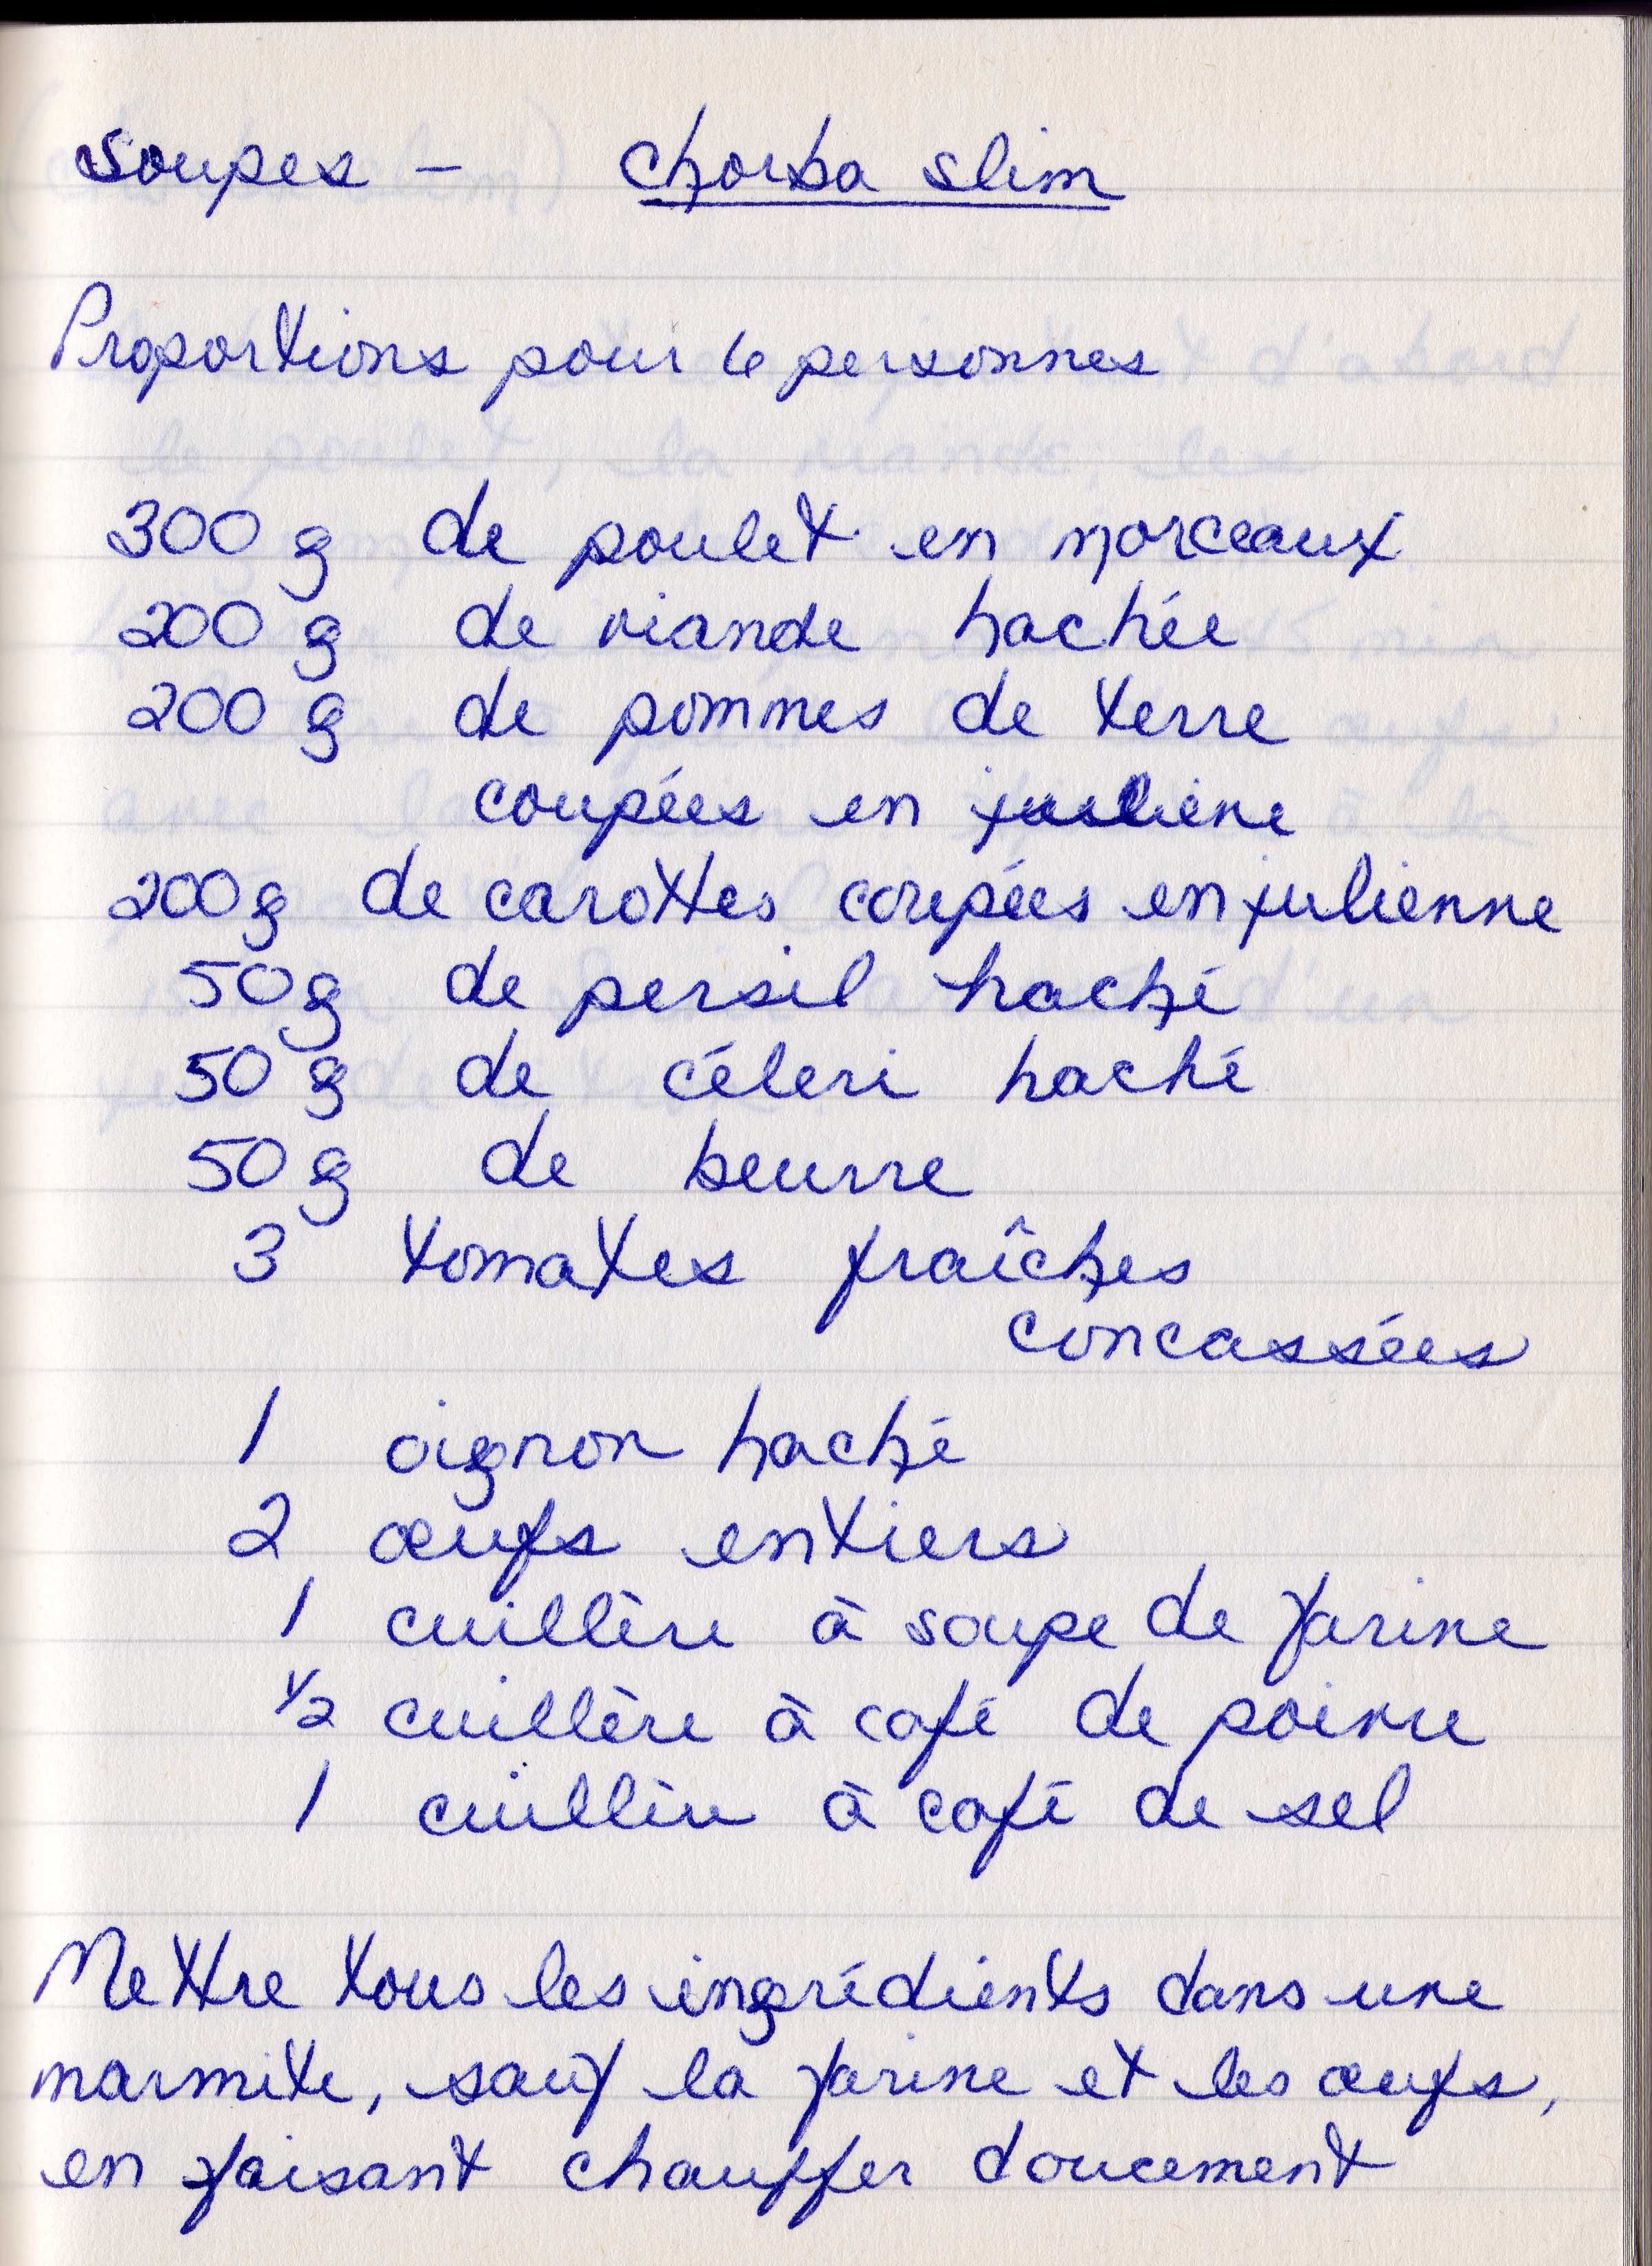 Soupes - Chorba slim
Proportions pour 6 personnes
300 g de poulet en morceaux
200 g de viande hachée
200 g de pommes de terre
coupées en juliene
200 g de carottes coupées en julienne
50 g de persil haché
50 g de céleri haché
50 g de beurre
3 tomates fraîches
concassées
1 oignon haché
2 œufs entiers
1 cuillère à soupe de farine
1/2 cuillère à café de poivre
1 cuillère à café de sel
Mettre tous les ingrédients dans une
marmite, sauf la farine et les œufs,
en faisant chauffer doucement